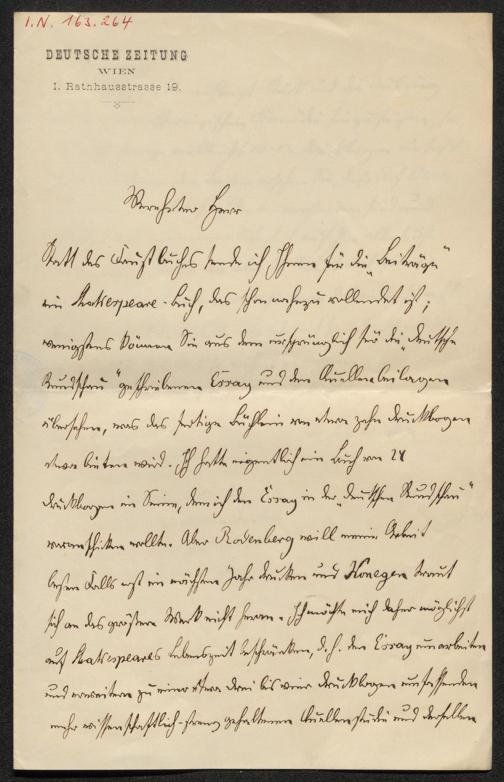 I.N. 163.264
DEUTSCHE ZEITUNG
WIEN
I. Rathhausstrasse 19.
Verehrter Herr
Statt des Faustbuches sende ich Ihnen für die „Beiträge“
ein Shakespeare-Buch, das schon nahezu vollendet ist;
wenigstens können Sie aus dem ursprünglich für die „Deutsche
Rundschau“ geschriebenen Essay und den Quellenbeilagen
übersehen, was das fertige Büchlein von etwa zehn Druckbogen
etwa bieten wird. Ich hatte eigentlich ein Buch von 24
Druckbogen im Sinne, dem ich den Essay in der „Deutschen Rundschau“
voranschicken wollte. Aber Rodenberg will meine Arbeit
besten Falls erst im nächsten Jahr drucken und Konegen traut
sich an das größere Werk nicht heran. Ich möchte mich daher möglichst
auf Shakespeares Lebenszeit beschränken, d. h. den Essay umarbeiten
und erweitern zu einer etwa drei bis vier Druckbogen umfassenden
mehr wissenschaftlich-streng gehaltenen Quellenstudie und derselben